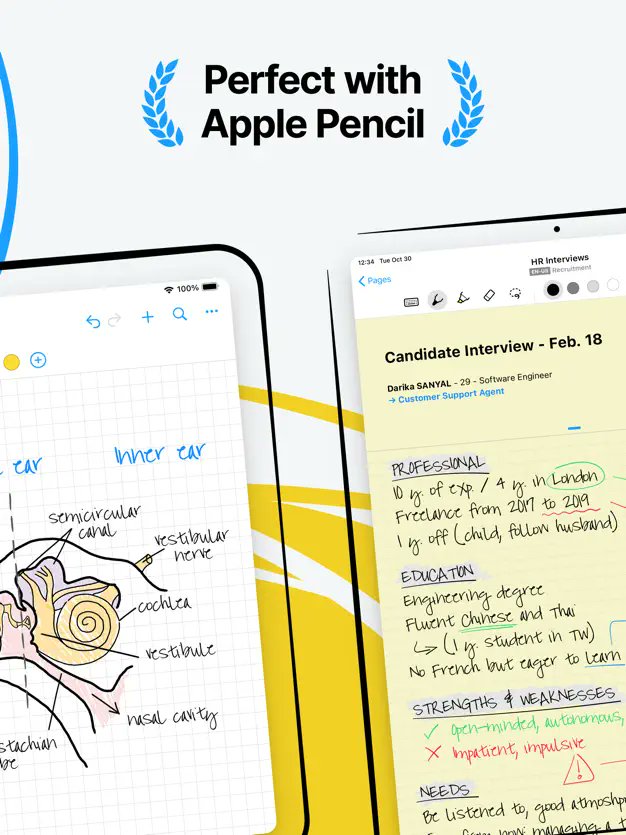 Perfect with
Apple Pencil
100%
ear
Inner ear
semicircular
canal
vestibular
nerve
cochlea
vestibule
nasal cavity
12:34 Tue Oct 30
Pages
HR Interviews
EN-US Recruitment
Candidate Interview - Feb. 18
Darika SANYAL - 29 - Software Engineer
→ Customer Support Agent
PROFESSIONAL
10 y. of exp. / 4 y. in London
Freelance from 2017 to 2019
1 y. off (child, follow husband)
EDUCATION
Engineering degree
Fluent Chinese and Thai
↳ (1 y. student in TW)
No French but eager to learn
STRENGTHS & WEAKNESSES
✓ open-minded, autonomous,
✗ impatient, impulsive
NEEDS
Be listened to, good
how managing a